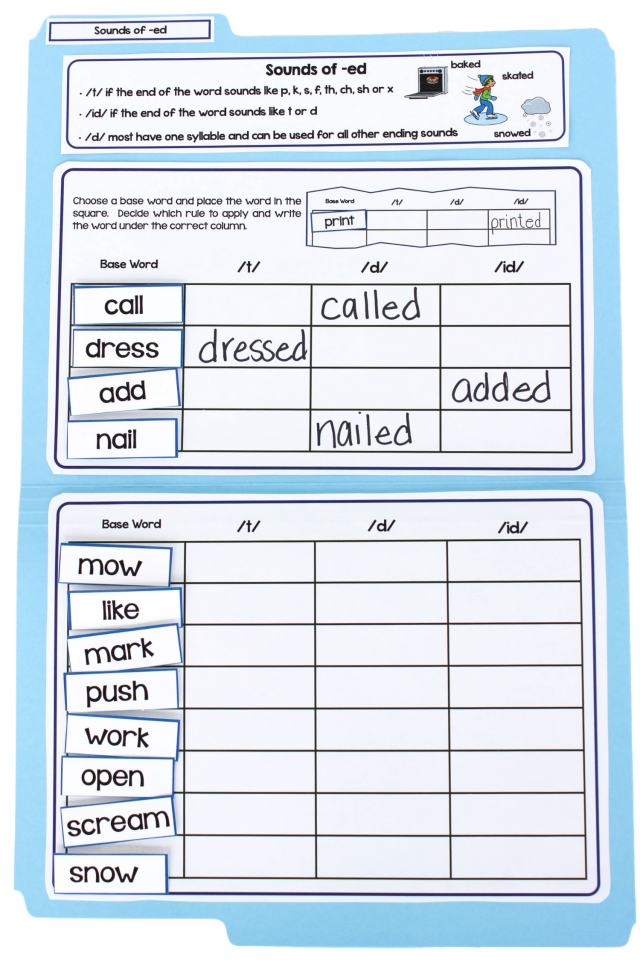 Sounds of -ed
Sounds of -ed
· /t/ if the end of the word sounds lke p, k, s, f, th, ch, sh or x
· /id/ if the end of the word sounds like t or d
· /d/ most have one syllable and can be used for all other ending sounds
baked
skated
snowed
Choose a base word and place the word in the
square. Decide which rule to apply and write
the word under the correct column.
Base Word /t/ /d/ /id/
print printed
Base Word /t/ /d/ /id/
call called
dress dressed
add added
nail nailed
Base Word /t/ /d/ /id/
mow
like
mark
push
work
open
scream
snow